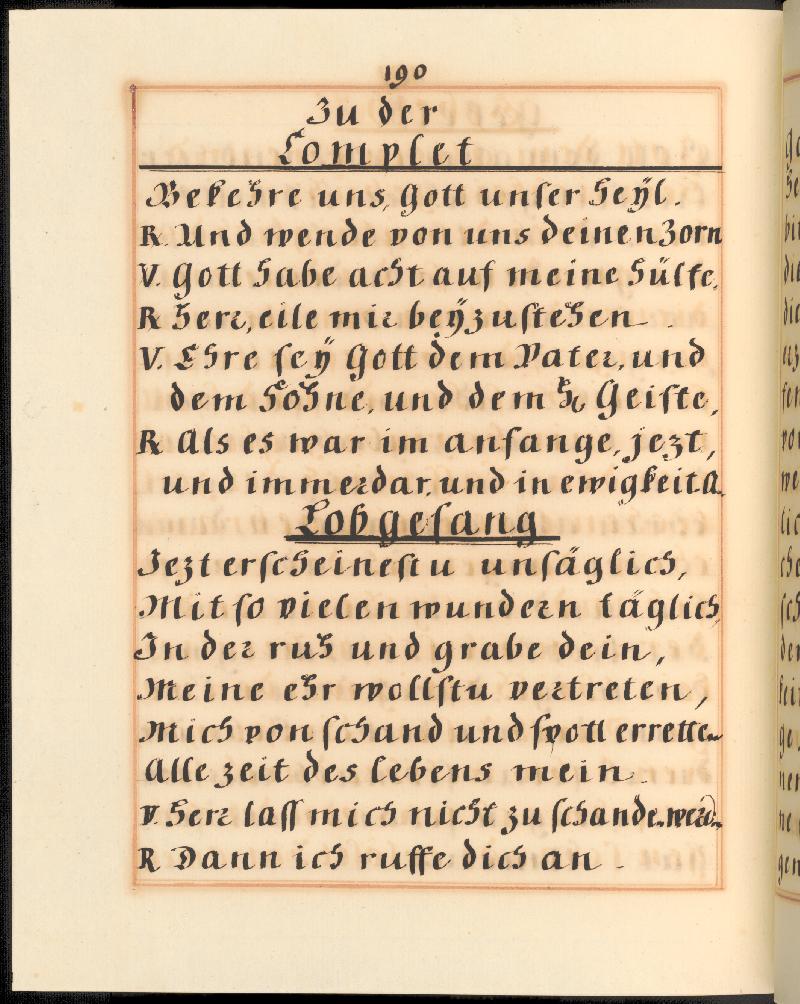 190
Zu der
Complet
Bekehre uns, Gott unser Heÿl.
R. Und wende von uns deinen Zorn
V. Gott habe acht auf meine Hülfe.
R Herr, eile mir beÿzustehen.
V. Ehre seÿ Gott dem Vater, und
dem Sohne, und dem H. Geiste,
R Als es war im anfange, jezt,
und immerdar, und in ewigkeit A.
Lobgesang
Jezt erscheinestu unsäglich,
Mit so vielen wundern täglich
In der ruh und grabe dein,
Meine ehr wollstu vertreten,
Mich von schand und spott errette
Alle zeit des lebens mein.
V. Herr lass mich nicht zu schande.werd.
R Dann ich ruffe dich an.